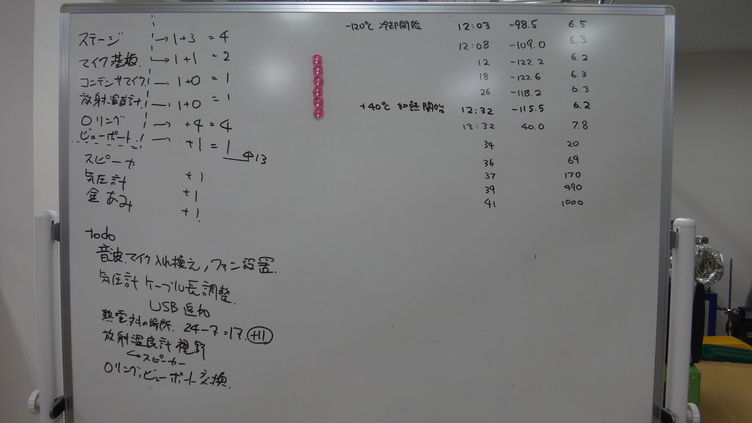 ステージ → 1+3 = 4
マイク基板 → 1+1 = 2
コンデンサマイク 1+0 = 1
放射温度計 → 1+0 = 1
Oリング → +4 = 4
ビューポート → +1 = 1
→ 13
スピーカ
気圧計 +1
金あみ +1
+1
todo
音波マイク入れ換え, ファン設置.
気圧計 ケーブル長調整.
USB追加
熱電対の場所. 24-7=17. +11
放射温度計 視野
↳スピーカー
Oリング、ビューポート交換.
-120℃ 冷却開始 12:03 -98.5 6.5
12:08 -109.0 6.3
12 -122.2 6.2
18 -122.6 6.3
26 -118.2 6.3
+40℃ 加熱開始 12:32 -115.5 6.2
13:32 40.0 7.8
34 20
36 69
37 170
39 490
41 1000